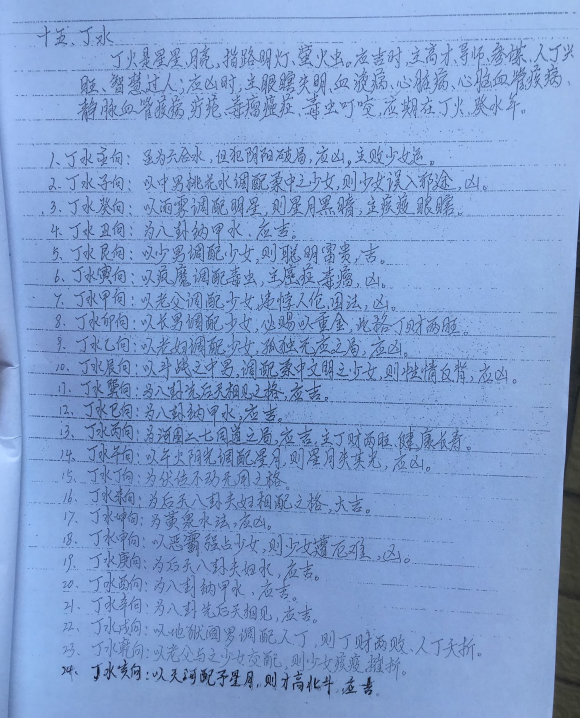 十五、丁水
丁火是星星、月亮，指路明灯、萤火虫。应吉时，主高才、导师、参谋、人丁兴
旺、智慧过人；应凶时，主眼瞎失明、血液病、心脏病、心脑血管疾病、
静脉血管疾病、疮疤、毒瘤癌症、毒虫叮咬，应期在丁火，癸水年。
1、丁水壬向：虽为六合水，但犯阴阳破局，应凶。主败少女运。
2、丁水子向：以中男桃花水调配家中之少女，则少女误入邪途，凶。
3、丁水癸向：以雨雾调配明星，则星月黑暗，主疾疫眼瞎。
4、丁水丑向：为八卦纳甲水，应吉。
5、丁水艮向：以少男调配少女，则聪明富贵，吉。
6、丁水寅向：以疯魔调配毒虫，主癌症、毒瘤，凶。
7、丁水甲向：以老父调配少女，违悖人伦、国法，凶。
8、丁水卯向：以长男调配少女，必赐以重金，此格丁财两旺。
9、丁水乙向：以老妇调配少女，孤独无应之局，应凶。
10、丁水辰向：以斗战之中男，调配家中文明之少女，则性情反背，应凶。
11、丁水巽向：为八卦先后天相见之格，应吉。
12、丁水巳向：为八卦纳甲水，应吉。
13、丁水丙向：为河图二七同道之局，应吉，主丁财两旺，健康长寿。
14、丁水午向：以午火阳光调配星月，则星月失其光，应凶。
15、丁水丁向：为伏位不动无用之格。
16、丁水未向：为后天八卦夫妇相配之格，大吉。
17、丁水坤向：为黄泉水法，应凶。
18、丁水申向：以恶霸强占少女，则少女遭厄难，凶。
19、丁水庚向：为后天八卦夫妇水，应吉。
20、丁水酉向：为八卦纳甲水，应吉。
21、丁水辛向：为八卦先后天相见，应吉。
22、丁水戌向：以地狱阎男调配人丁，则丁财两败、人丁夭折。
23、丁水乾向：以老父与之少女交配，则少女疾疫、挫折。
24、丁水亥向：以天河配予星月，则才高北斗，应吉。